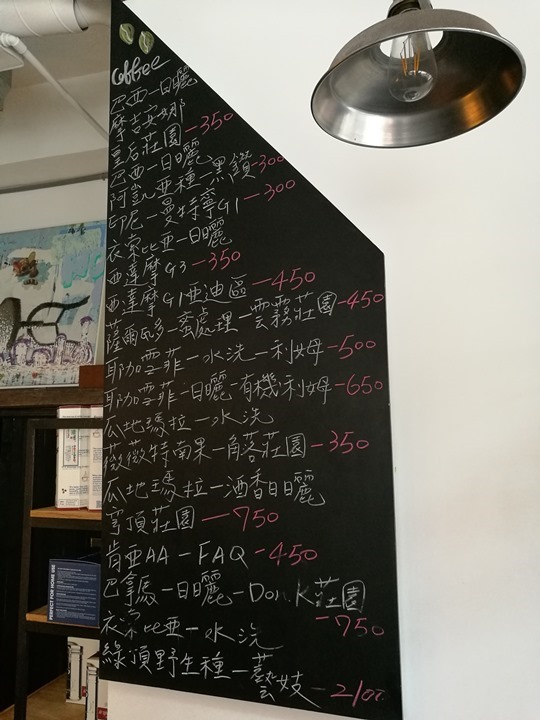 coffee
巴西-日曬
摩吉安娜
皇后莊園-350
巴西-日曬
阿凱亞種-黑鑽-300
印尼-曼特寧G1-300
衣索比亞-日曬
西達摩G3-350
西達摩G1西迪區-450
薩爾瓦多-蜜處理-雲霧莊園-450
耶加雪菲-水洗-利姆-500
耶加雪菲-日曬-有機利姆-650
瓜地瑪拉-水洗
薇薇特南果-角落莊園-350
瓜地瑪拉-酒香日曬
穹頂莊園-750
肯亞AA-FAQ-450
巴拿馬-日曬-Don.K莊園
-750
衣索比亞-水洗
綠頂野生種-藝妓
PERFECT FOR HOME USE